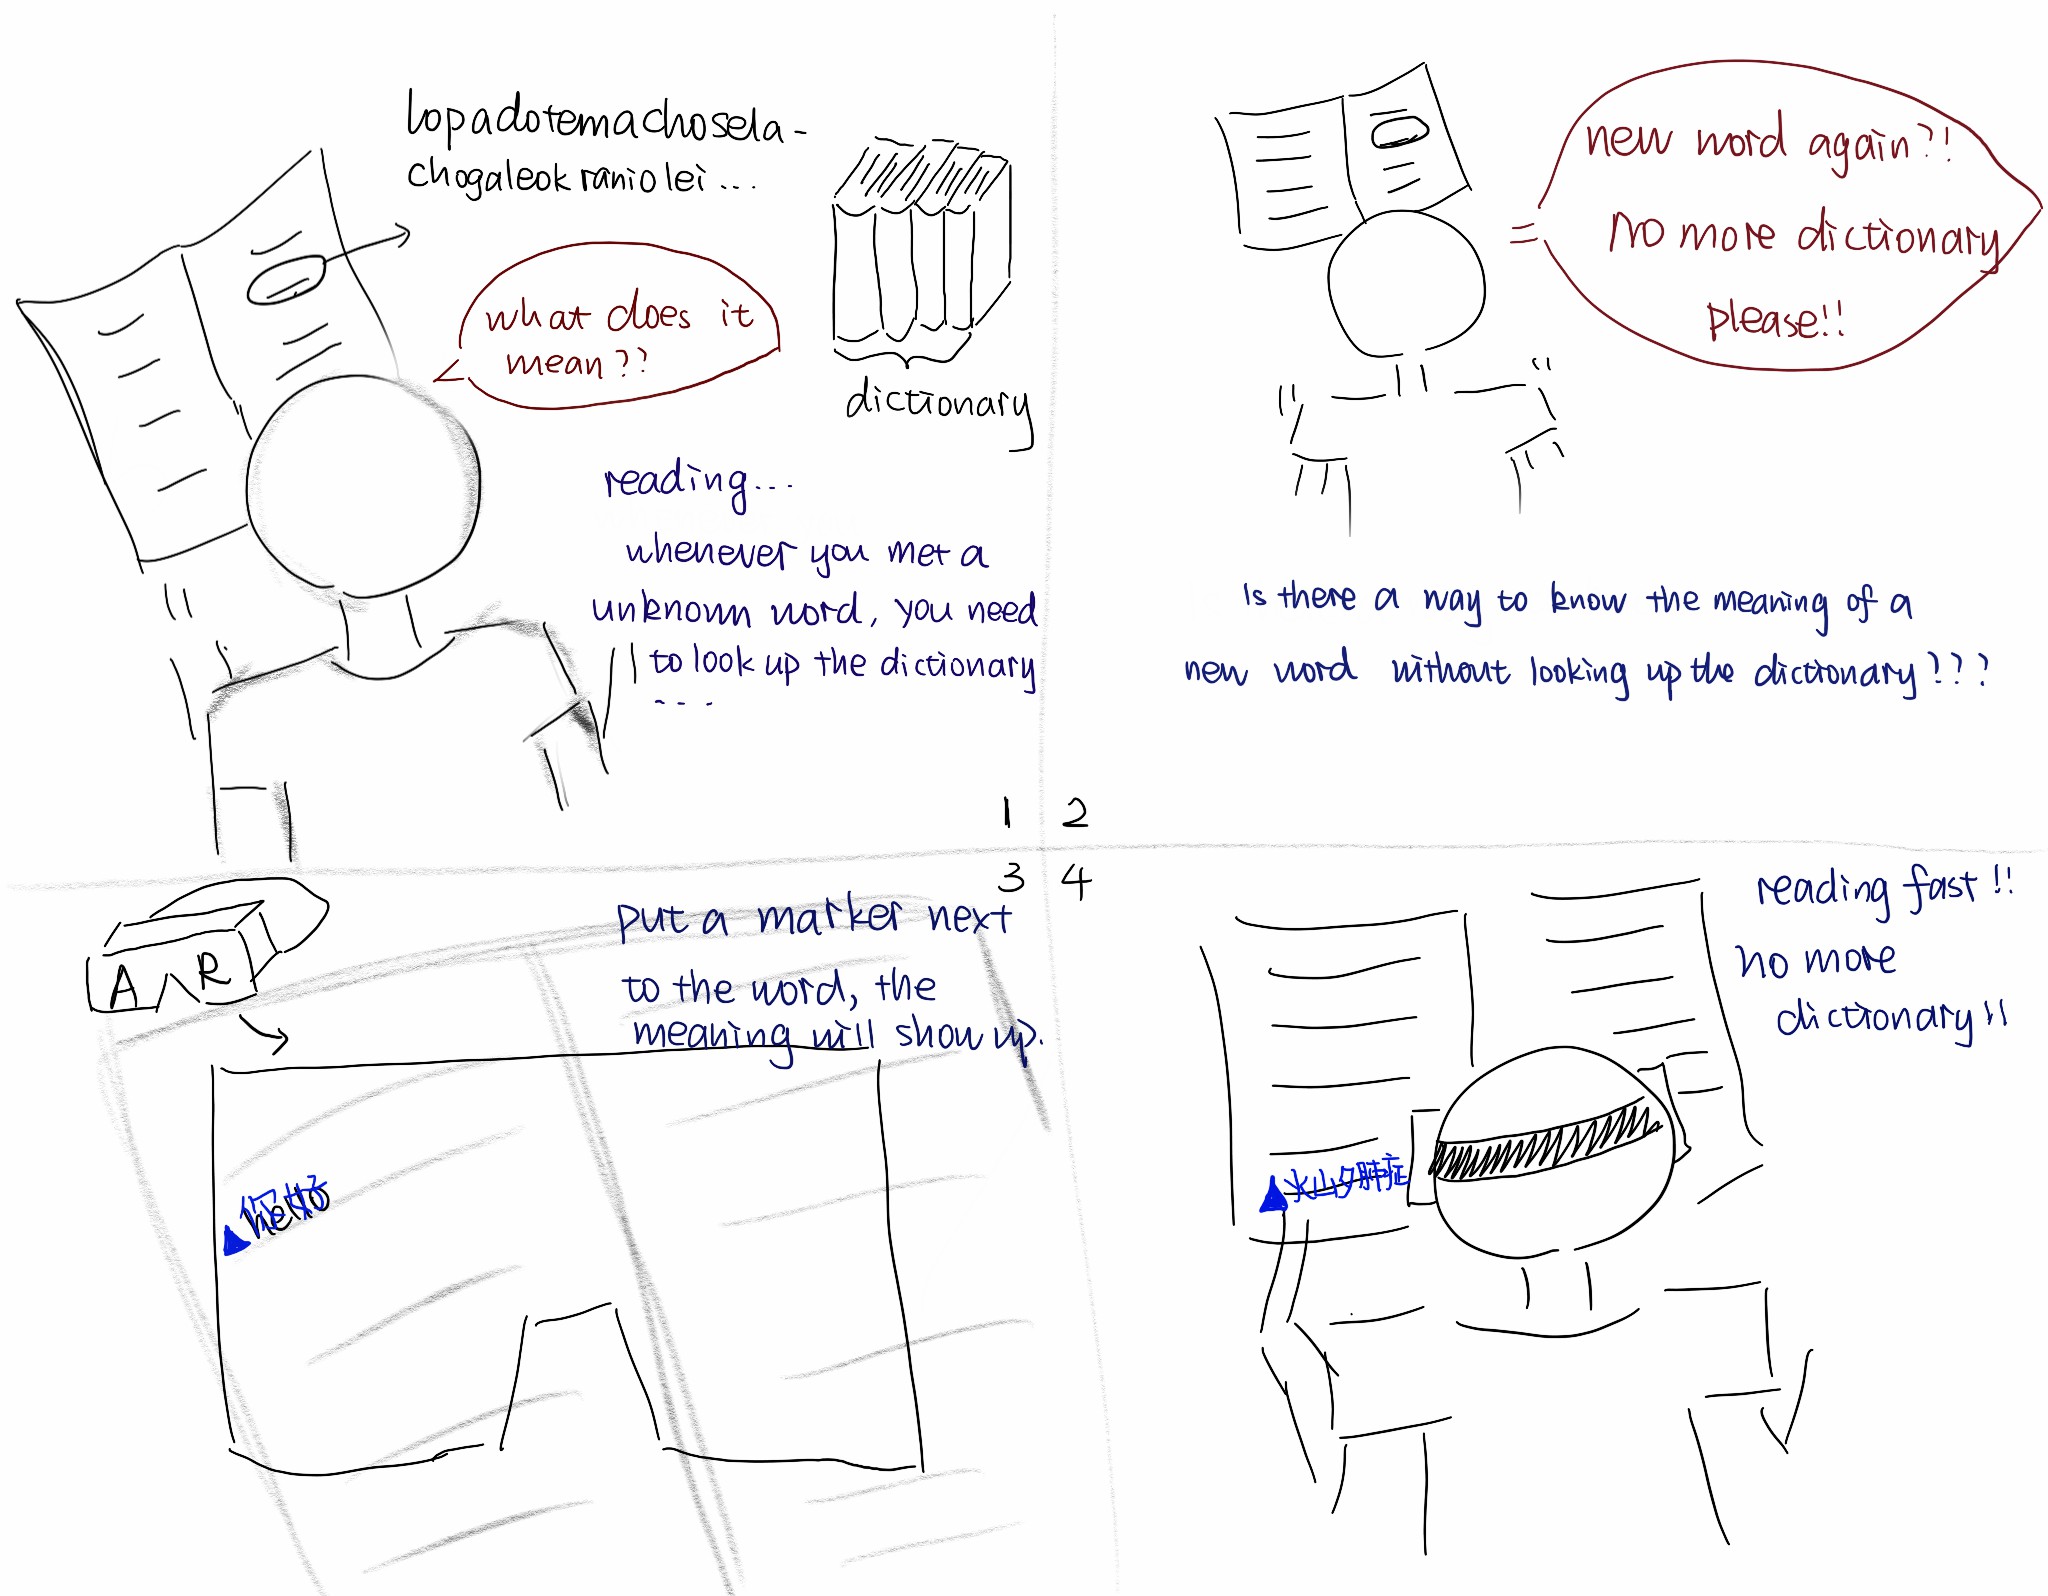 lopadotemachosela-
chogaleokraniolei...
what does it
mean??
dictionary
reading...
whenever you met a
unknown word, you need
to look up the dictionary
....
1
new word again?!
no more dictionary
please!!
Is there a way to know the meaning of a
new word without looking up the dictionary???
2
3
A R
put a marker next
to the word, the
meaning will show up.
你好
hello
4
reading fast!!
no more
dictionary!!
火山夕肺症